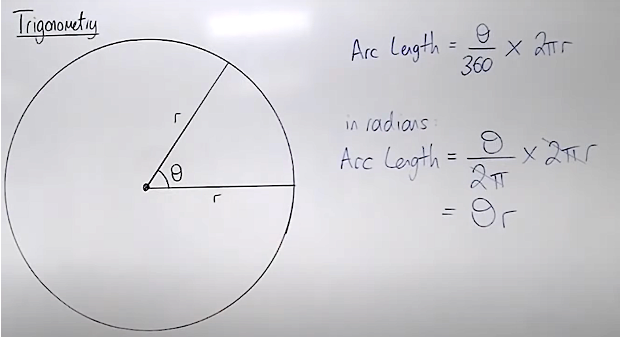 Trigonometry
r
θ
r
Arc Length = θ/360 × 2πr
in radians:
Arc Length = θ/2π × 2πr
= θr